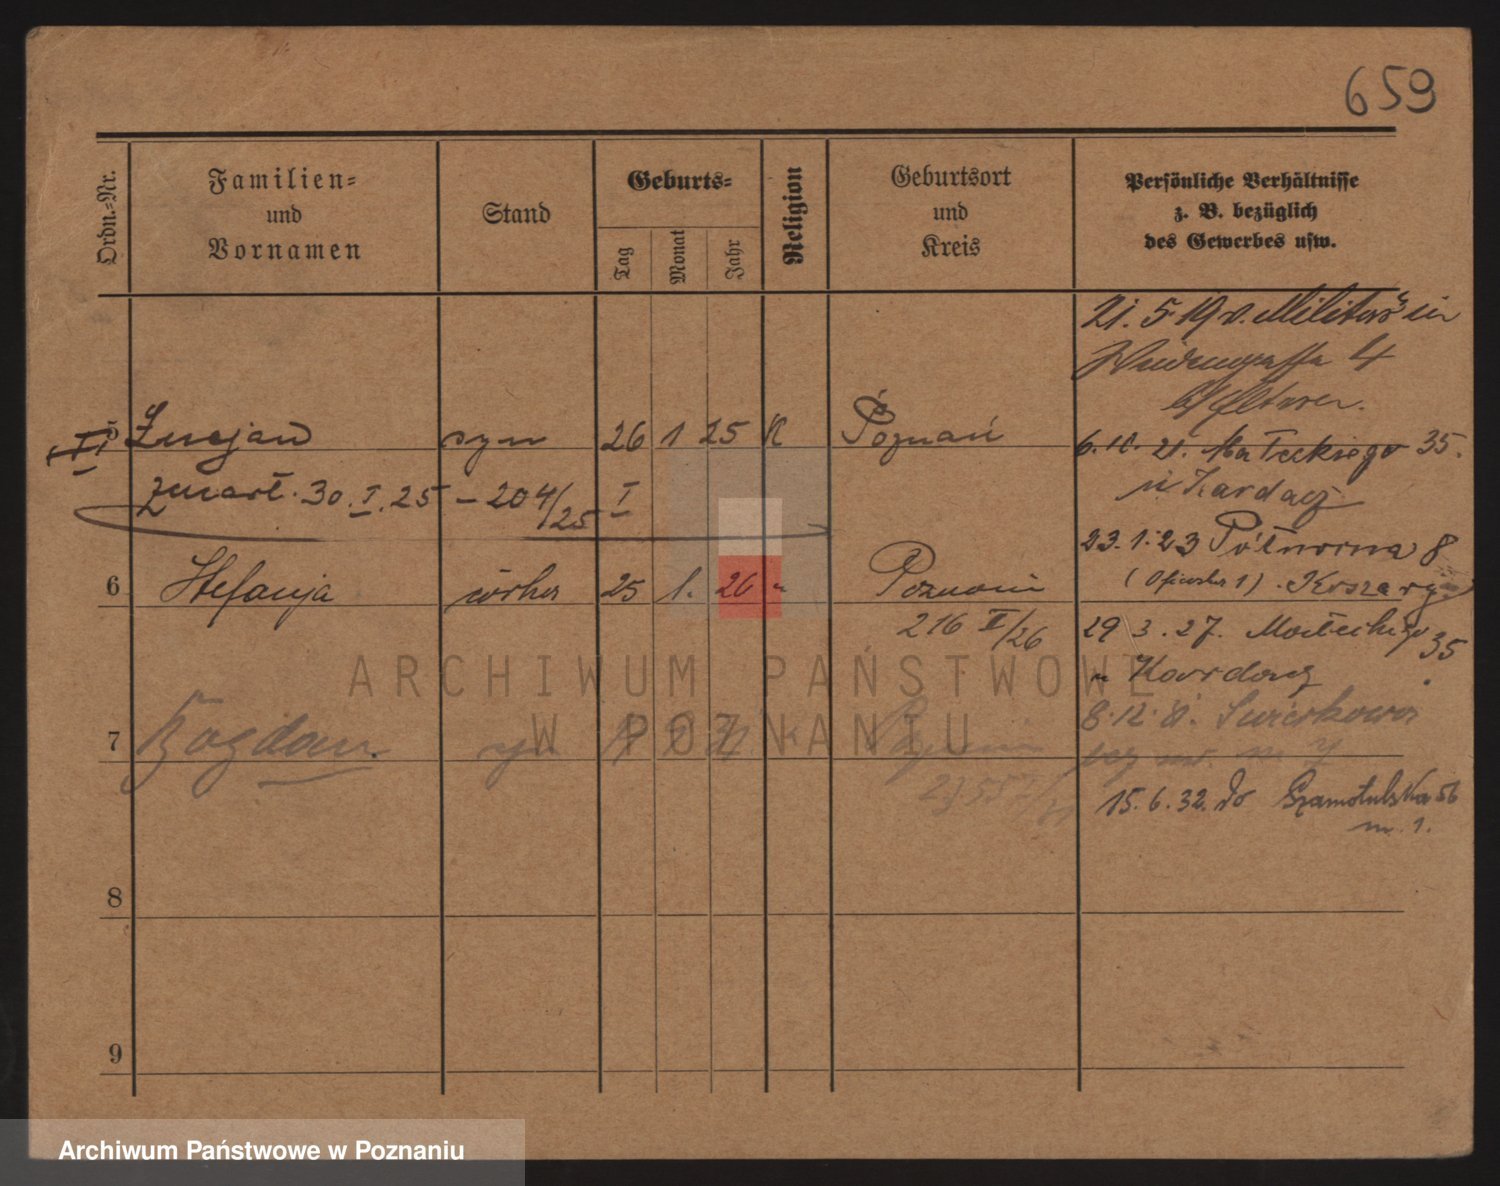 659
Ordn.=Nr.
Familien=
und
Vornamen
Stand
Geburts=
Tag
Monat
Jahr
Religion
Geburtsort
und
Kreis
Persönliche Verhältnisse
z. B. bezüglich
des Gewerbes usw.
21. 5. 19 v. Militär in
4
b/ Eltern.
5 Lucjan syn 26 1 25 K Poznań
6. 10. 21. Małeckiego 35.
zmarł. 30. I. 25 – 204/25 I
u Kardacz
23. 1. 23 Półwiejska 8
6 Stefanja córka 25 1. 26 " Poznań
216 II/26
29 3. 27. Małeckiego 35
u Kardacz
8. 12. Świerkowa
7 Bogdan syn
15. 6. 32. do Szamotulska 56
m. 1.
8
9
ARCHIWUM PAŃSTWOWE
W POZNANIU
Archiwum Państwowe w Poznaniu